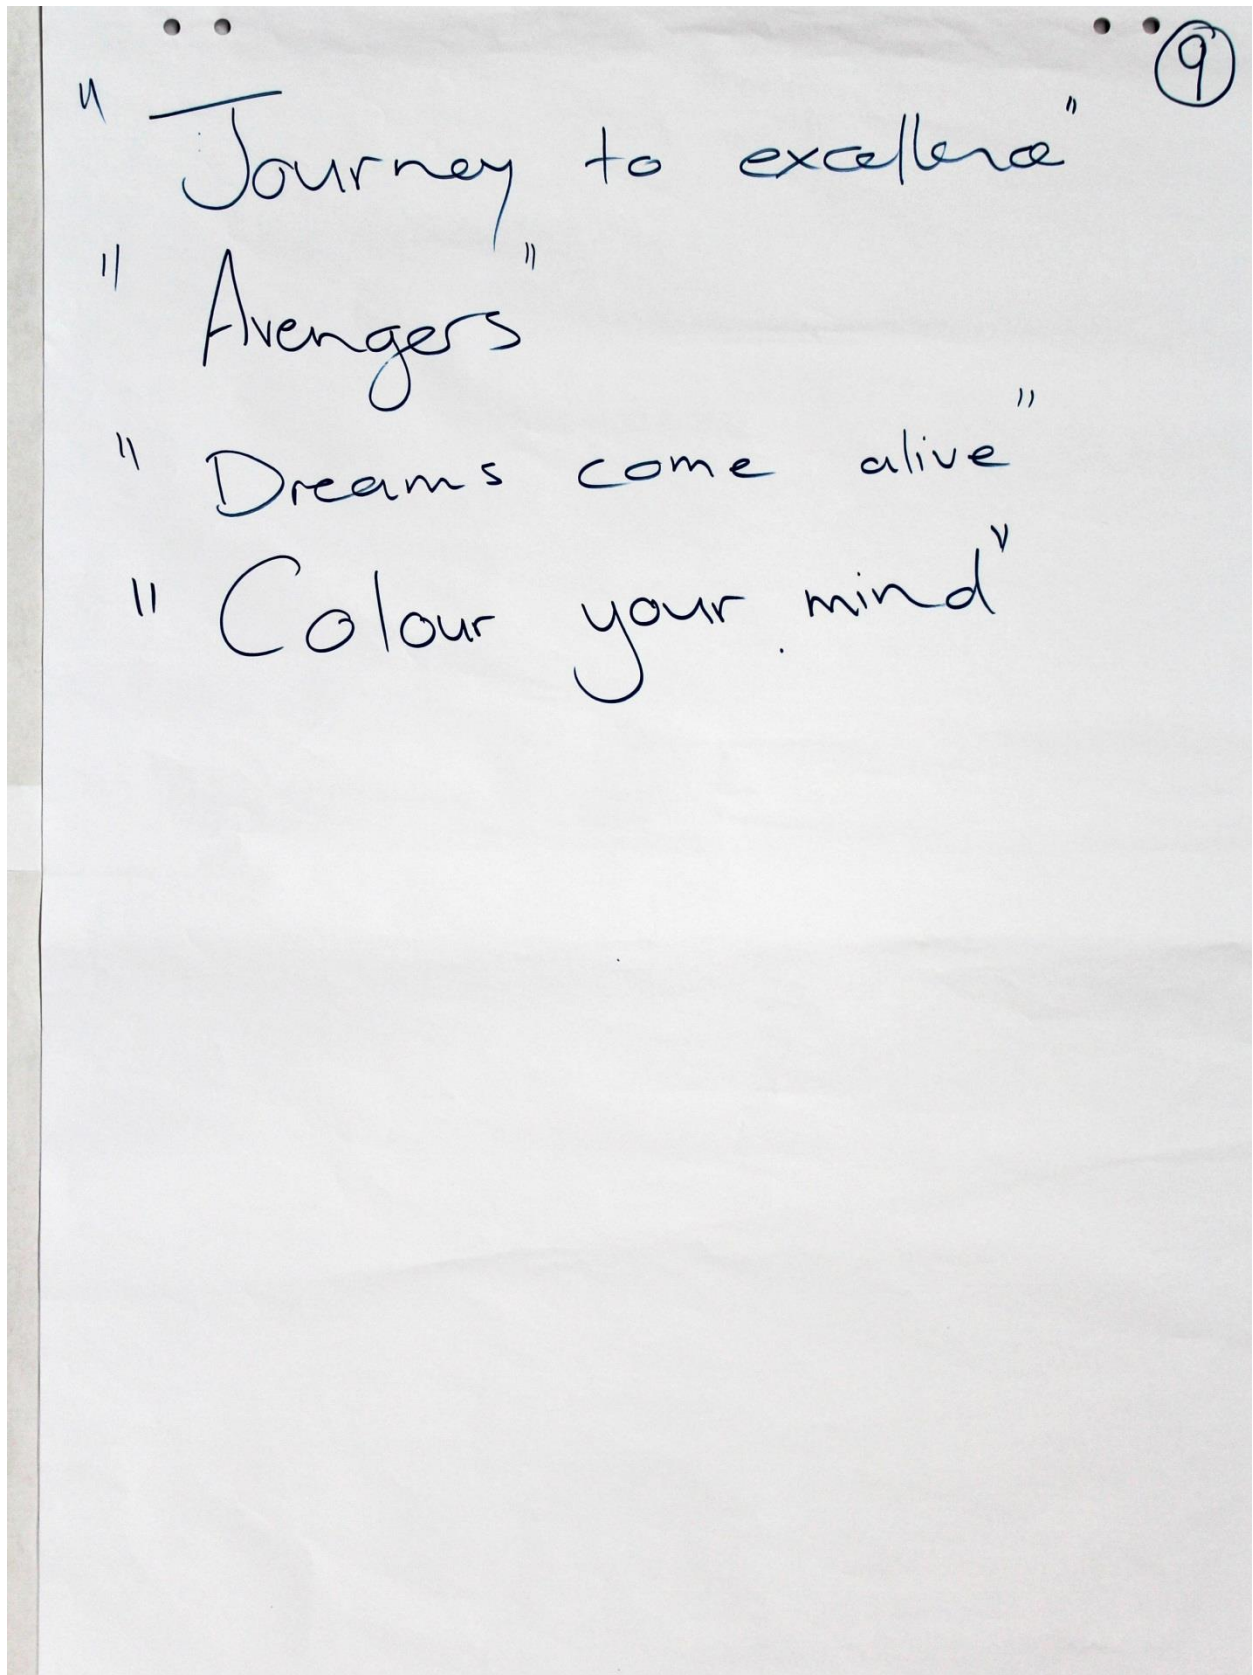 9
" Journey to excellence"
" Avengers"
" Dreams come alive"
" Colour your mind"